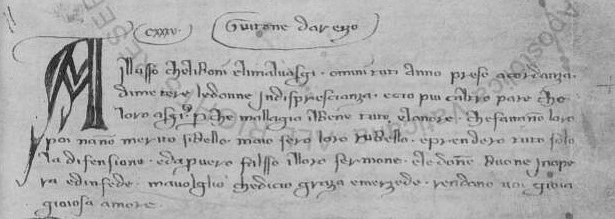 cxxv Guittone darezzo
A llasso chelibon elimalvasgi · omini tuti anno preso acordanza ·
dimetere ledonne indisprescianza · ecio piu caltro pare che
loro asgi · p che mallagia ilbene tuto elonore · che fanno loro
poi nano merito sibello · maio sero loro ribello · eprendero tuto solo
la difensione · edapuero falsso illoro sermone · ele donne buone inope
ra edinfede · mavolglio chedicio graza emerzede · rendano voi gioia
gioiosa amore ·